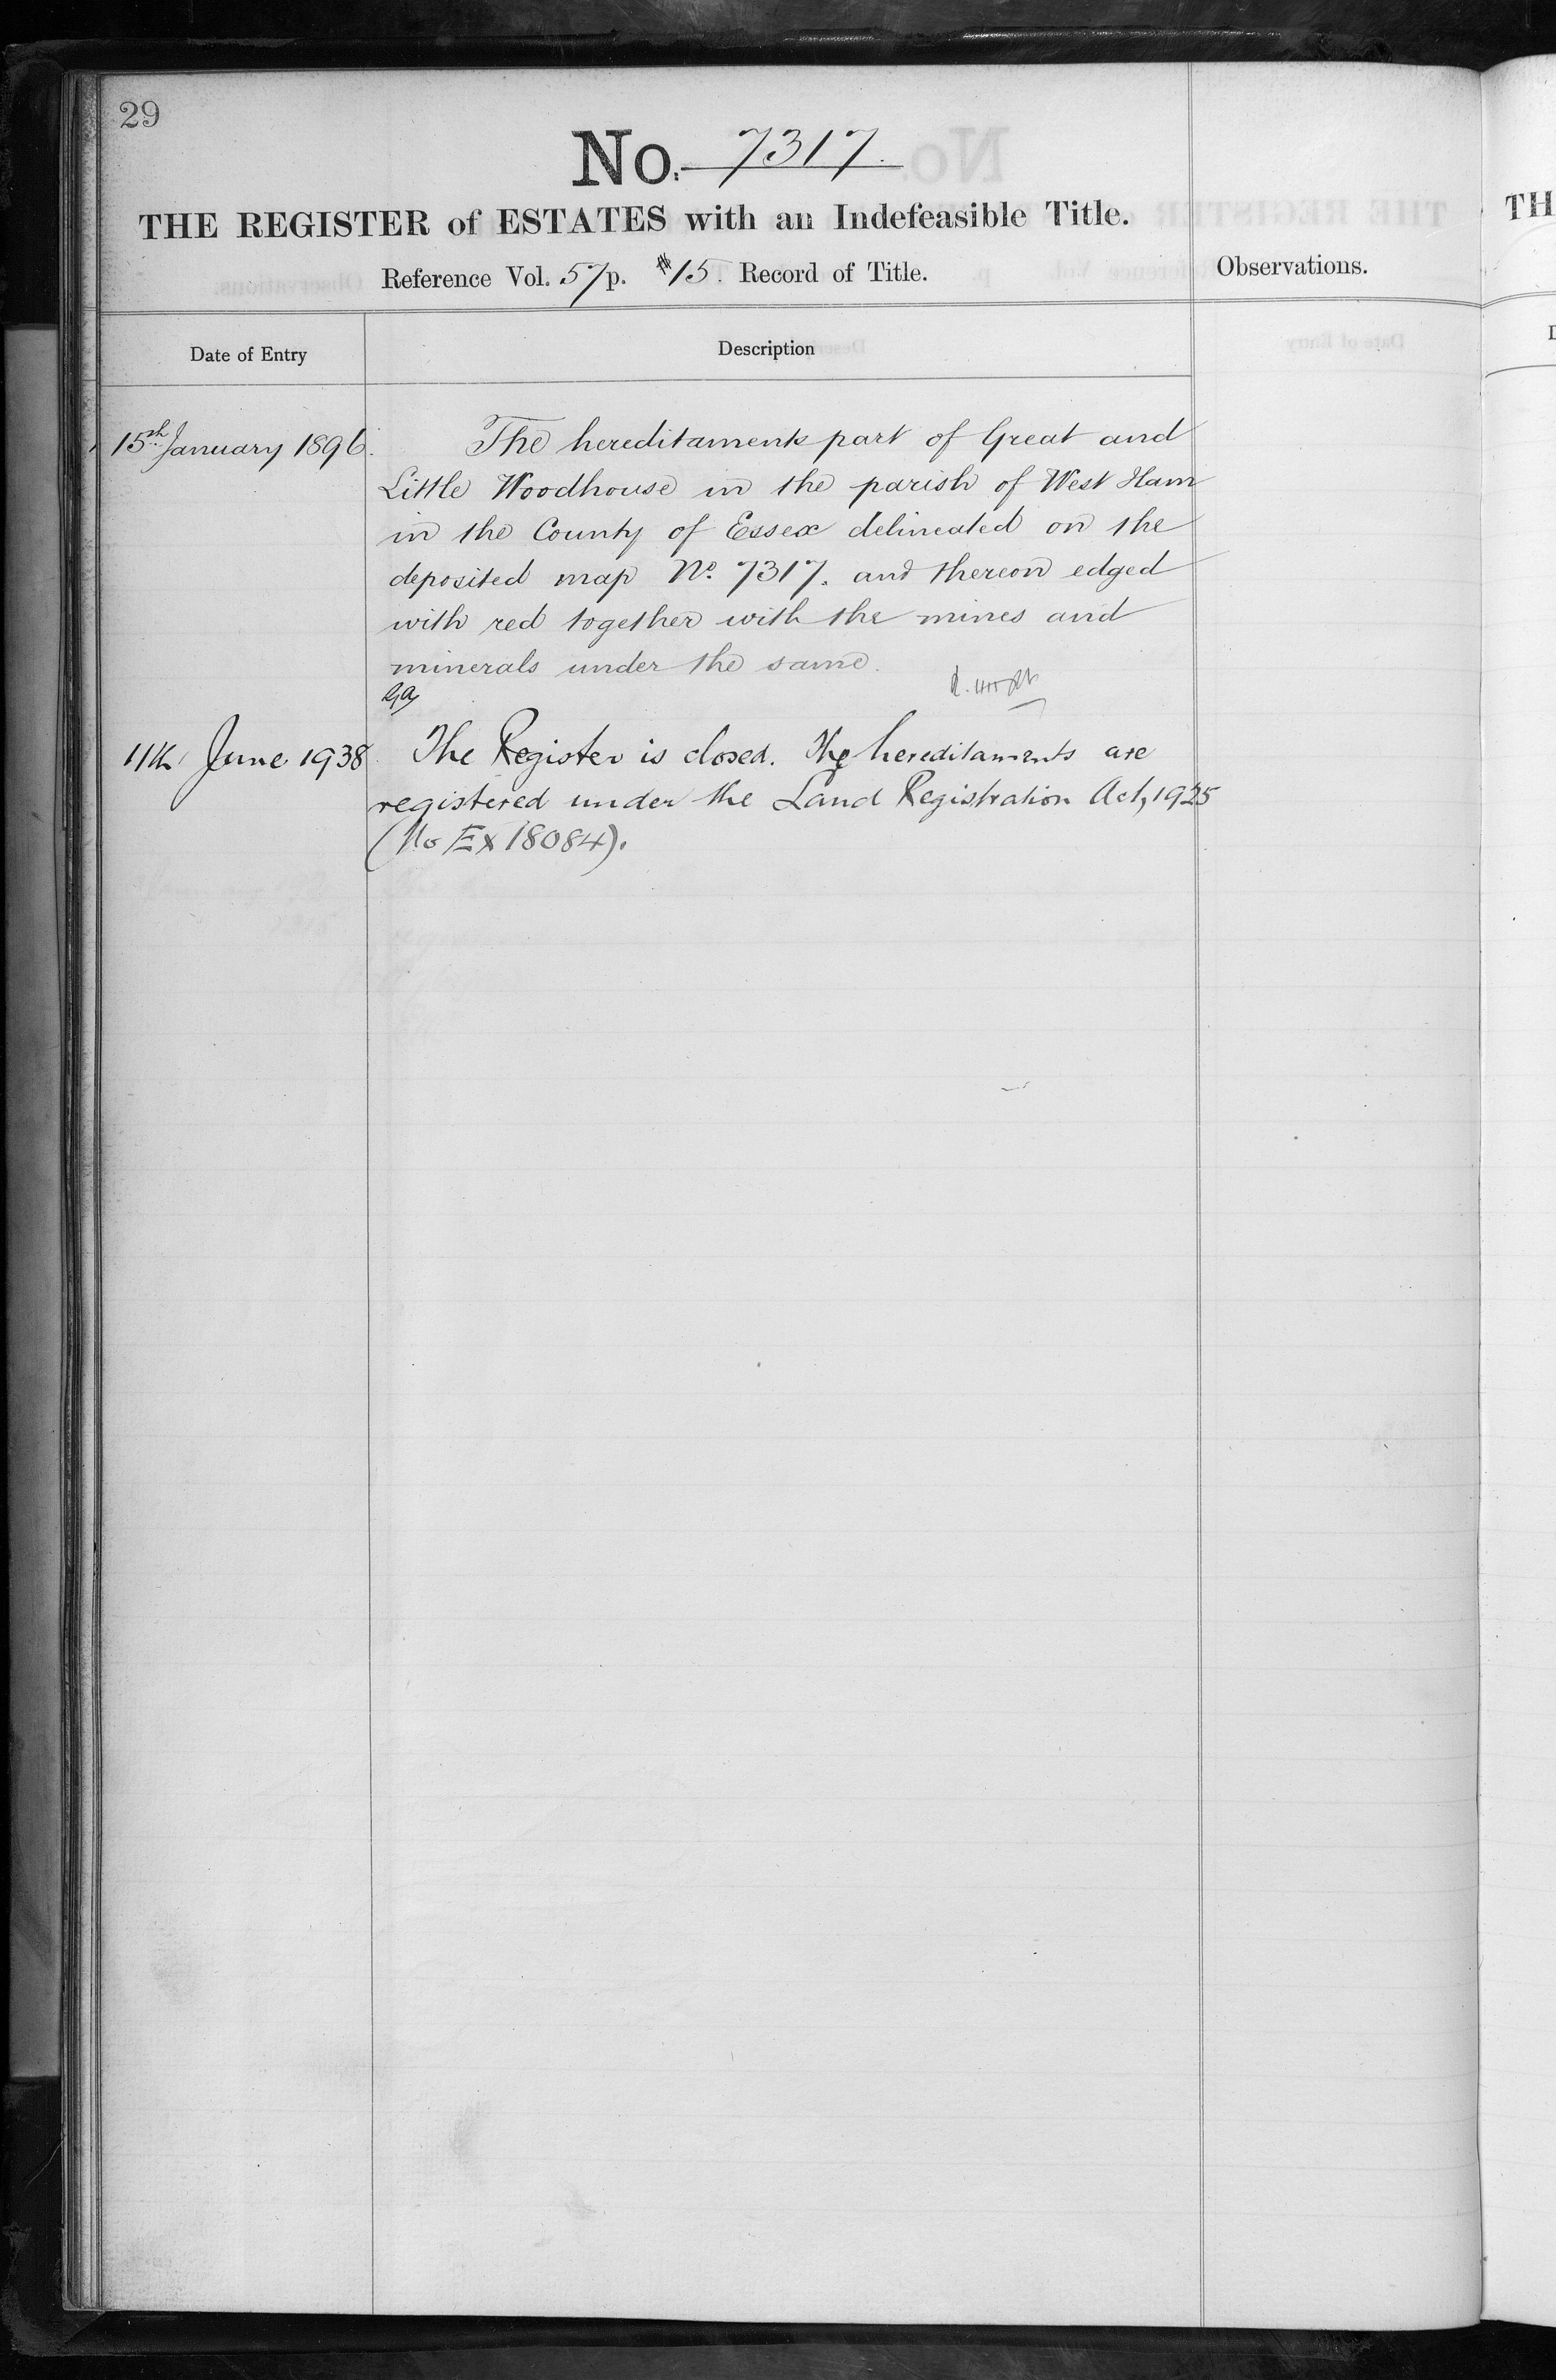 29
No. 7317.
THE REGISTER of ESTATES with an Indefeasible Title.
Reference Vol. 57 p. 15. Record of Title.
Observations.
Date of Entry
Description
15th January 1896.
The hereditaments part of Great and
Little Woodhouse in the parish of West Ham
in the County of Essex delineated on the
deposited map No. 7317. and thereon edged
with red together with the mines and
minerals under the same.
11th June 1938
The Register is closed. The hereditaments are
registered under the Land Registration Act, 1925
(No EX 18084).
TH